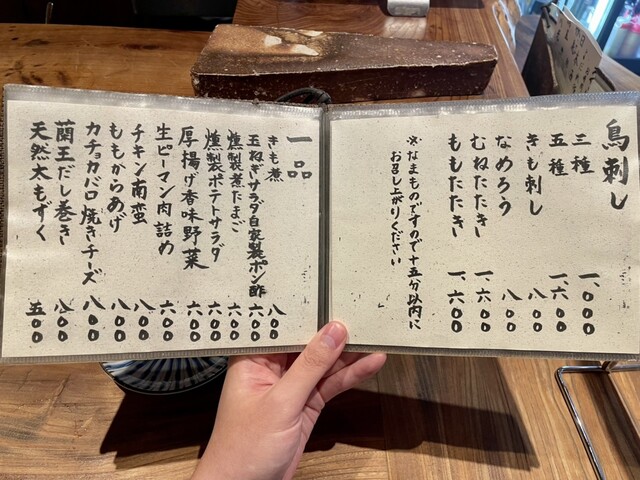 鳥刺し
三種 一、〇〇〇
五種 一、六〇〇
きも刺し 八〇〇
なめろう 八〇〇
むねたたき 一、六〇〇
ももたたき 一、六〇〇
※なまものですので十五分以内に
お召し上がりください
一品
きも煮 八〇〇
玉ねぎサラダ自家製ポン酢 六〇〇
燻製煮たまご 六〇〇
燻製ポテトサラダ 六〇〇
厚揚げ香味野菜 六〇〇
生ピーマン肉詰め 六〇〇
チキン南蛮 八〇〇
ももからあげ 八〇〇
カチョカバロ焼きチーズ 八〇〇
蘭王だし巻き 八〇〇
天然太もずく 五〇〇